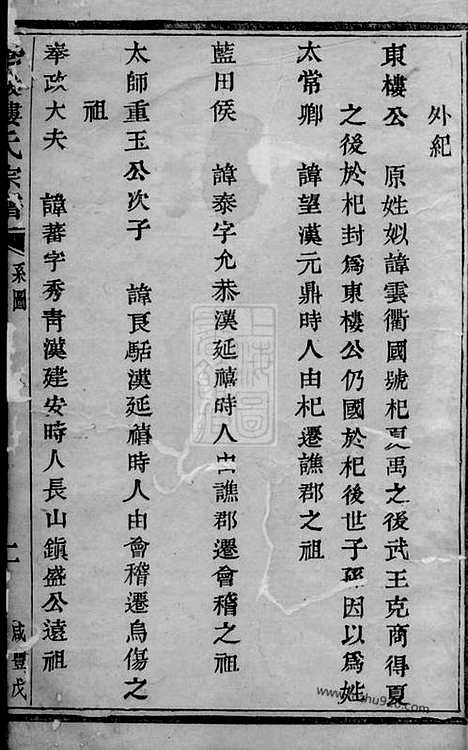 外紀
東樓公　原姓姒諱雲衢國號杞夏禹之後武王克商得夏
之後於杞封為東樓公仍國於杞後世子孫因以為姓
太常卿　諱望漢元鼎時人由杞遷譙郡之祖
藍田侯　諱泰字允恭漢延禧時人由譙郡遷會稽之祖
太師重玉公次子　諱良駬漢延禧時人由會稽遷烏傷之
祖
奉政大夫　諱蕃字秀青漢建安時人長山鎮盛公遠祖
樓氏宗譜
系圖
二
咸豐戊